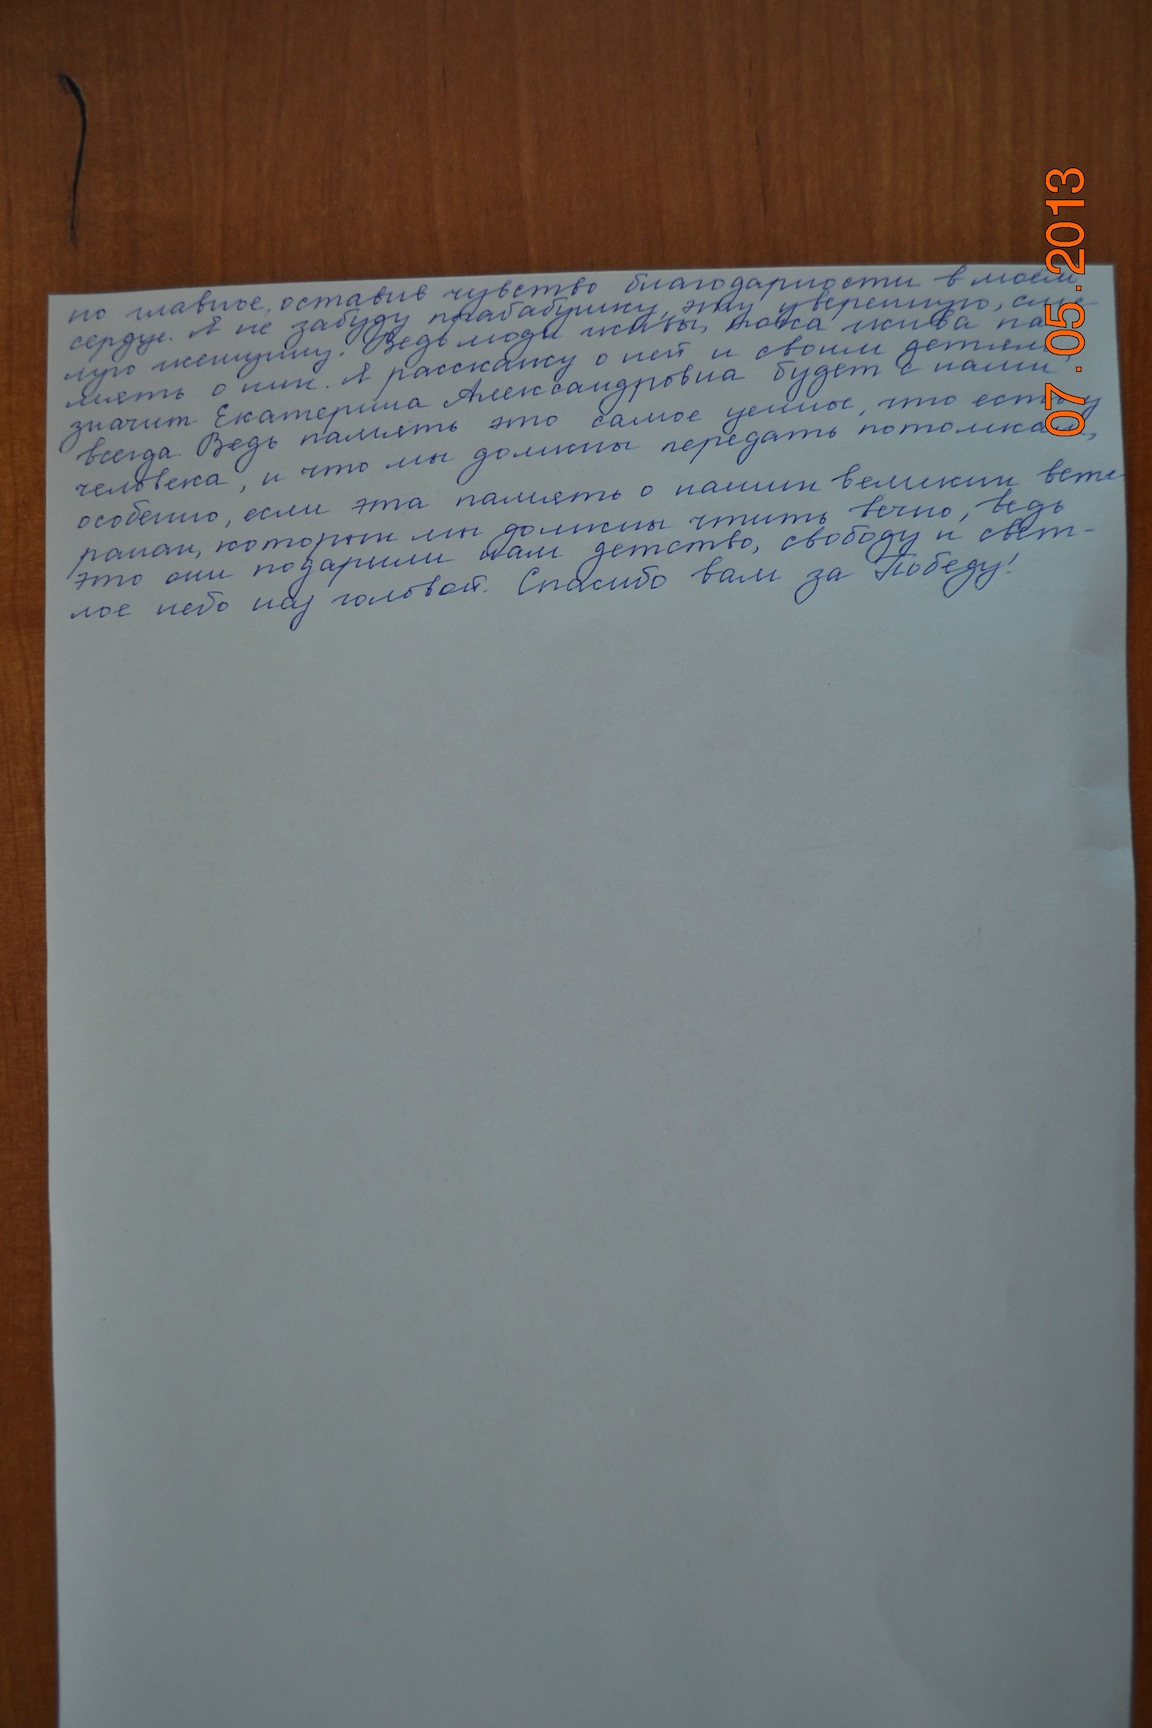 но главное, оставив чувство благодарности в моём
сердце. Я не забуду прабабушку, эту уверенную, сме-
лую женщину. Ведь люди живы, пока жива па-
мять о них. Я расскажу о ней и своим детям,
значит Екатерина Александровна будет с нами
всегда. Ведь память это самое ценное, что есть у
человека, и что мы должны передать потомкам,
особенно, если эта память о наших великих вете
ранах, которых мы должны чтить вечно, ведь
это они подарили нам детство, свободу и свет-
лое небо над головой. Спасибо вам за Победу!
07.05.2013